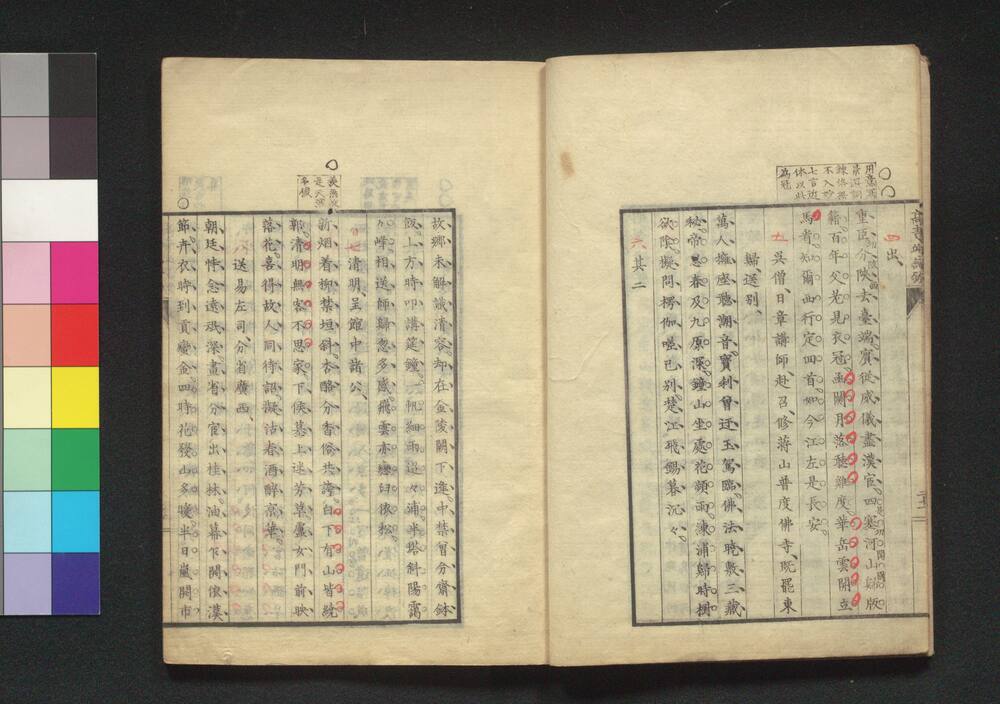 四 出、
重臣分陝去臺端賓從威儀盡漢官四塞河山歸版
籍百年父老見衣冠函關月落聽雞度華岳雲開立
馬看知爾西行定回首如今江左是長安
五 吳僧日章講師赴召修蔣山普度佛寺既罷東
歸送別
萬人擁座聽潮音寶刹曾迂玉駕臨佛法曉敷三藏
秘帝恩春及九原深鐘山坐處花頷雨漣浦歸時樹
欲陰擬問楞伽嗟已別楚江飛錫暮沉々
六 其二
七言近
体以此
為冠
故鄉未解識清容却在金陵闕下逢中禁曾分齋鉢
飯上方時叩講筵鐘一帆細雨々浦半塔斜陽靄
々峰相送師歸忽多感飛雲亦戀依松
七 清明呈館中諸公
新烟着柳禁垣斜杏酪分香俗共誇白下有山皆繞
郭清明無客不思家卞侯墓上迷芳草盧女門前映
落花喜得故人同待詔擬沽春酒醉京華
八 送易左司分省廣西
朝廷惟念遠珉深畫省分官出桂林油幕乍開儂漢
節卉衣時到貢蠻金四時花發山多暖半日嵐開市